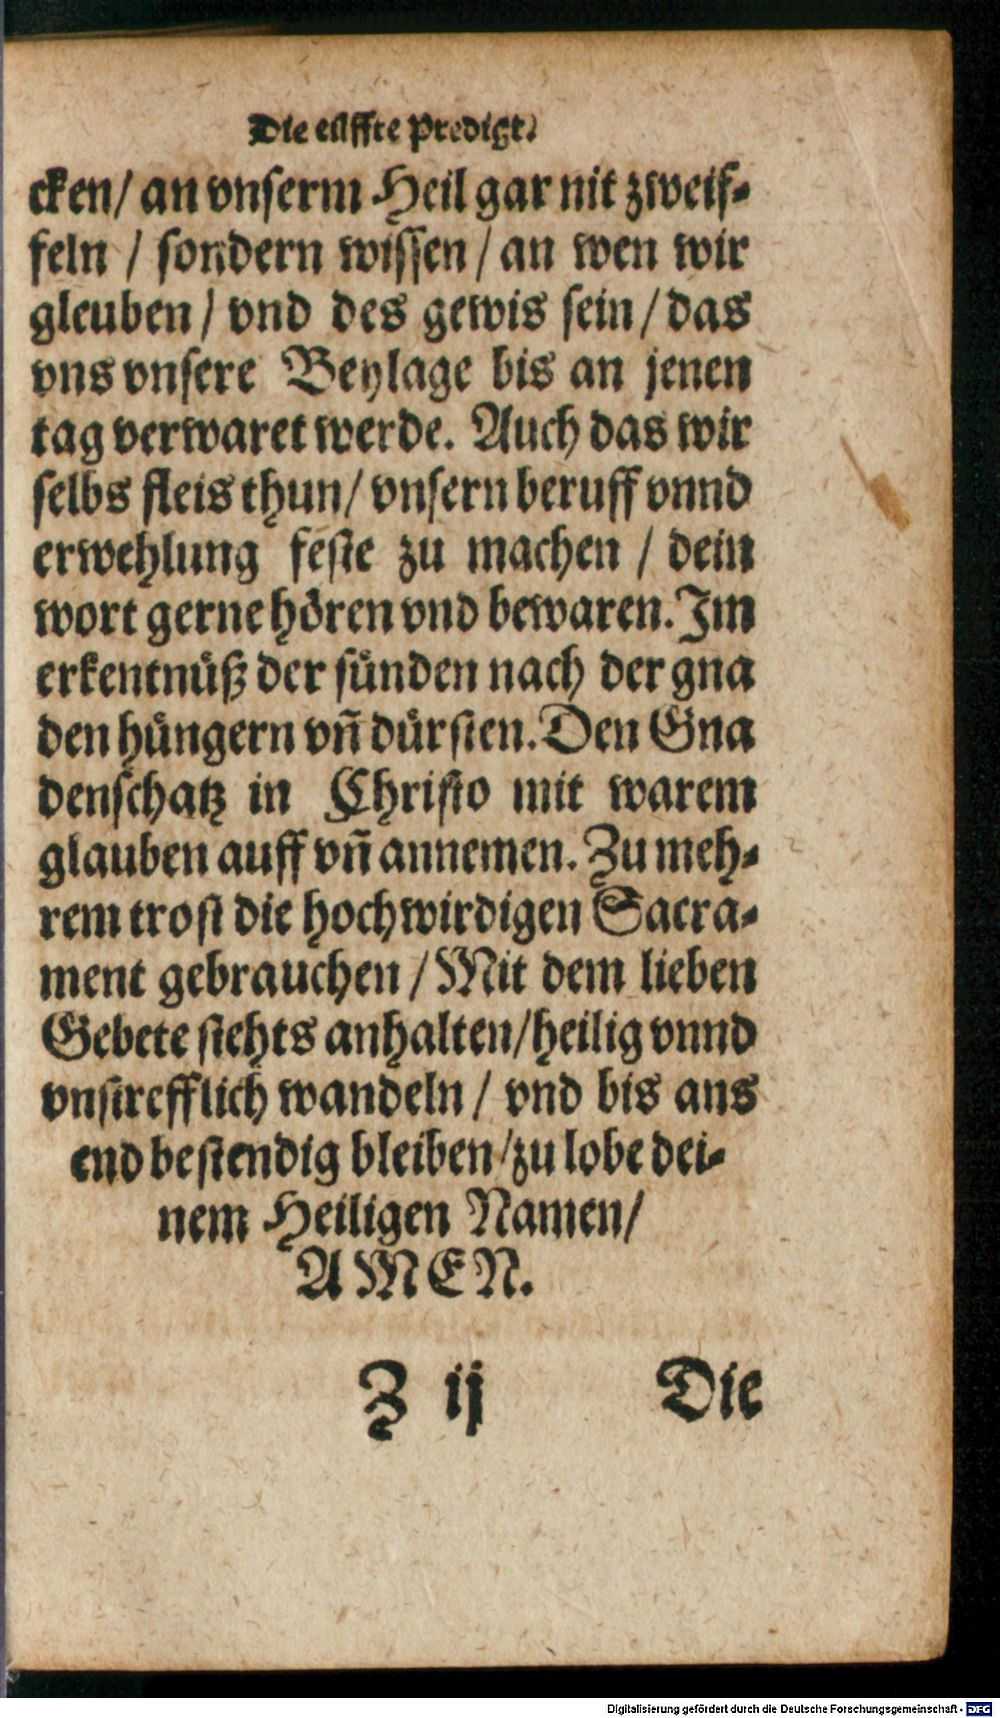 Die eilffte Predigt.
cken/ an vnserm Heil gar nit zweif⸗
feln / sondern wissen / an wen wir
gleuben / vnd des gewis sein / das
vns vnsere Beylage bis an jenen
tag verwaret werde. Auch das wir
selbs fleis thun/ vnsern beruff vnnd
erwehlung feste zu machen / dein
wort gerne hören vnd bewaren. Im
erkentnüß der sünden nach der gna
den hüngern vñ dürsten. Den Gna
denschatz in Christo mit warem
glauben auff vñ annemen. Zu meh⸗
rem trost die hochwirdigen Sacra⸗
ment gebrauchen / Mit dem lieben
Gebete stehts anhalten/heilig vnnd
vnstrefflich wandeln / vnd bis ans
end bestendig bleiben /zu lobe dei⸗
nem Heiligen Namen/
AMEN.
Z ij Die
Digitalisierung gefördert durch die Deutsche Forschungsgemeinschaft - DFG